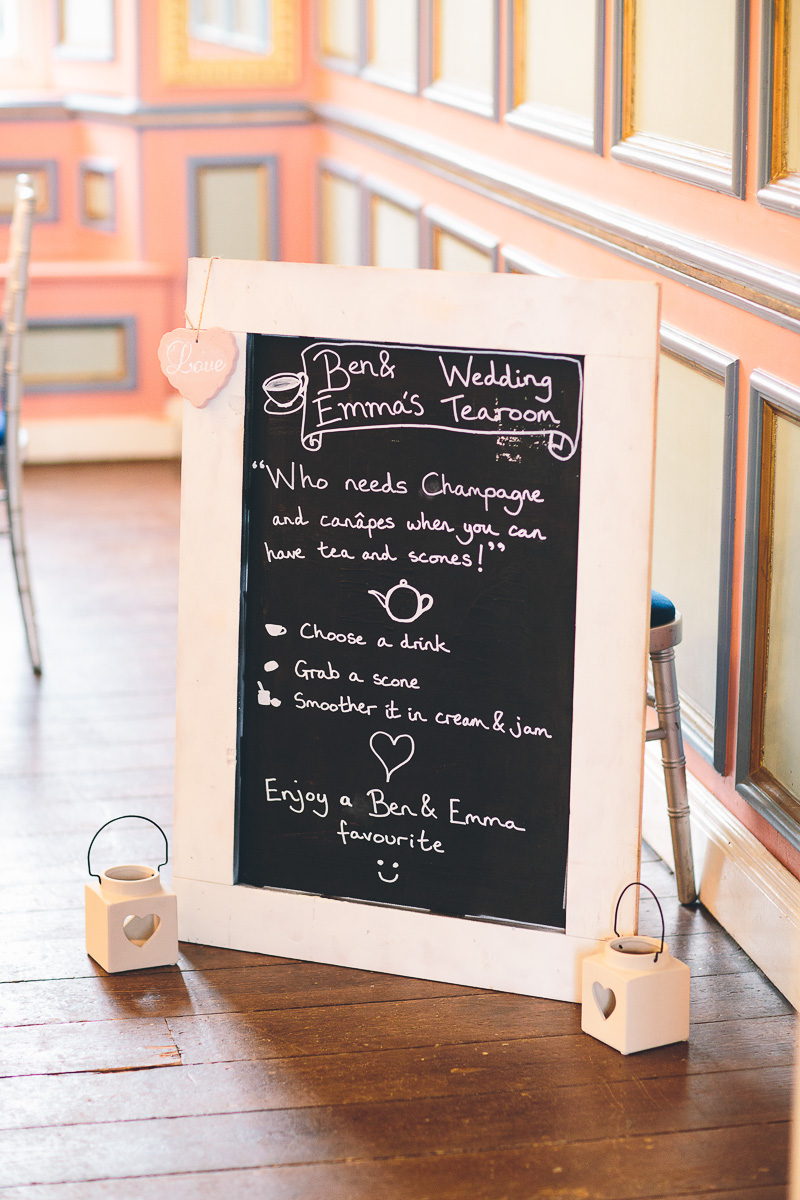 Love
Ben& Wedding
Emma's Tearoom
"Who needs Champagne
and canâpes when you can
have tea and scones!"
Choose a drink
Grab a scone
Smoother it in cream & jam
Enjoy a Ben & Emma
favourite